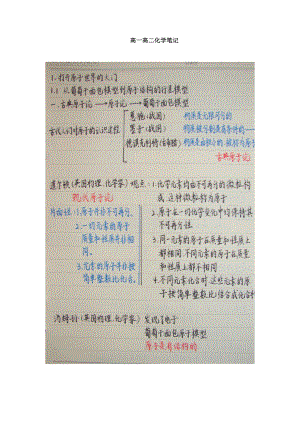 高一高二化学笔记
1. 打开原子世界的大门
1.1 从葡萄干面包模型到原子结构的行星模型
一、古典原子论 → 原子论 → 葡萄干面包模型
惠施(战国) 物质是无限可分的
古代人们对原子的认识过程
墨子(战国)
德谟克利特(古希腊)
古典原子论
道尔顿(英国物理、化学家)观点:1.化学元素均由不可再分的微粒构
现代原子论
成,这种微粒称为原子
片面性:1.原子并非不可再分,
2.原子在一切化学变化中均保持其
2.一切的原子的
不可再分性
质量和性质
3.同一元素的原子在质量和性质上
并非相同.
都相同,不同元素的原子在质量和
性质上都不相同
3.元素的原子并非按
简单整数比化合.
4.不同元素化合时,这些元素的原
子按简单整数比结合成化合物
汤姆孙(英国物理、化学家) 发现了电子
葡萄干面包原子模型
原子是有结构的